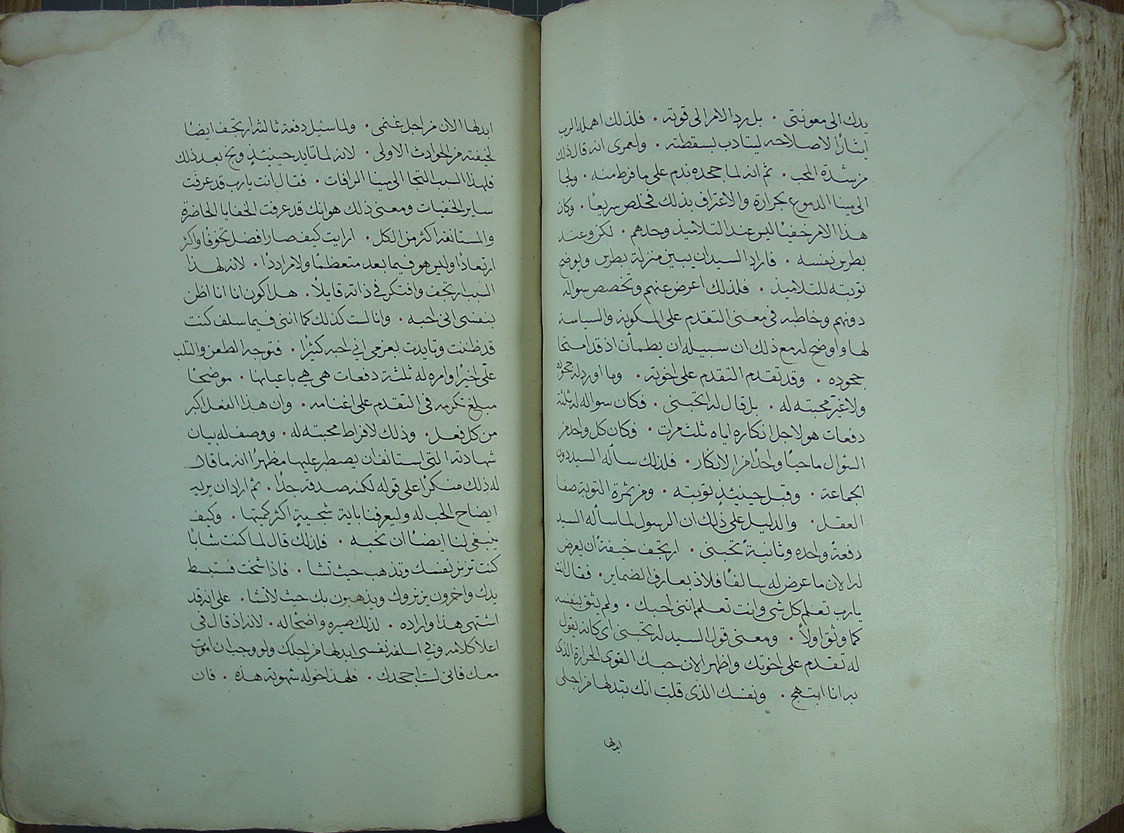 يدك الى معونتى . بل رد الامر الى قوته . فلذلك اهمله الرب
ايثارًا لاصلاحه ليتادب بسقطته . ولعمرى انه قال ذلك
من شدة المحب . ثم انه لما جحده ندم على ما فرط منه . ولجا
الى مينا الدموع بحرارة والاعتراف بذلك فخلص سريعًا . وكان
هذا الامر خفيًا ليس عند التلاميذ وحدهم . لكن وعند
بطرس نفسه . فاراد السيد ان يبين منزلة بطرس ويوضح
توبته للتلاميذ . فلذلك اعرض عنهم وتخصص سواله
دونهم وخاطبه فى معنى التقدم على المسكونة والسياسة
لها واوضح له مع ذلك ان سبيله ان يطمأن اذ قد امتحا
جحوده . وقد تقدم التقدم على اخوته . وما اورد له جحوده
ولا عير محبته له . بل قال له اتحبنى . فكان سواله له ثلثة
دفعات هو لاجل انكاره اياه ثلث مرات . فكان كل واحد من
السؤال ماحيًا واحدًا من الانكار . فلذلك سأله السيد دون
الجماعة . وقبل حينيذٍ توبته . ومن ثمرة التوبة صفا
العقل . والدليل على ذلك ان الرسول لما سأله السيد
دفعة واحده وثانية تحبنى . ارتجف خيفة ان يعرض
له الان ما عرض له سالفًا فلاذ بعارف الضماير . فقال انت
يارب تعلم كل شى وانت تعلم اننى احبك . ولم يثق بنفسه
كما وثق اولاً . ومعنى قول السيد له تحبنى اى كانه يقول
له تقدم على اخوتك واظهر الان حبك القوى الحرارة الذى
به انا ابتهج . ونفسك الذى قلت انك تبذلها من اجلى
ابدلها
ابدلها الان من اجل غنمى . ولما سيل دفعة ثالثة ارتجف ايضًا
لخيفته من الحوادث الاولى . لانه لما تايد حينيذٍ وبخ بعد ذلك
فلهذا السبب التجا الى مينا الرافات . فقال انت يارب قد عرفت
ساير الخفيات ومعنى ذلك هو انك قد عرفت الخفايا الحاضرة
والمستانفة اكثر من الكل . ارايت كيف صار افضل تخوفًا واكثر
ارتعادًا وليس هو فيما بعد متعظمًا ولا مرادًا . لانه لهذا
السبب ارتجف وافتكر فى ذاته قايلاً . هل اكون انا انا اظن
بنفسى انى احبه . وانا لست كذلك كما اننى فيما سلف كنت
قد ظنت وتايدت بعزمى انى احبه كثيرًا . فتوجه الطعن والثلب
علىّ اخيرًا وامره له ثلثة دفعات هى هى باعيانها . موضحًا
مبلغ تكرمه فى التقدم على اغنامه . وان هذا الفعل اكبر
من كل فعل . وذلك لافراط محبته له . ووصف له بيان
شهادته التى استانف ان يصطبر عليها مظهرًا انه ما قال
له ذلك منكرًا على قوله لكنه صدقه جدًا . ثم اراد ان يريه
ايضاح الحب له وليعرفنا باية سجية اكثر كميتها . وكيف
ينبغى لنا ايضًا ان نحبه . فلذلك قال لما كنت شابًا
كنت تزنر نفسك وتذهب حيث تشا . فاذا شخت فستبسط
يدك واخرون يزنروك ويذهبون بك حيث لا تشا . على انه قد
اشتهى هذا واراده . لذلك صيره واضحًا له . لانه اذ قال فى
اعلا كلامه وفي اسفله نفسى ابدلها من اجلك ولو وجب ان اموت
معك فانى لست اجحدك . فلهذا خوله شهوته هذه . فان